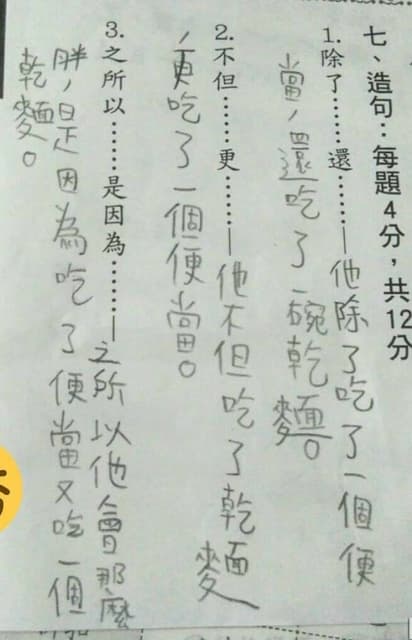 七、造句：每題4分，共12分
1.除了……還……—他除了吃了一個便
當，還吃了一碗乾麵。
2.不但……更……—他不但吃了乾麵
，更吃了一個便當。
3.之所以……是因為……—之所以他會那麼
胖，是因為吃了便當又吃一個
乾麵。